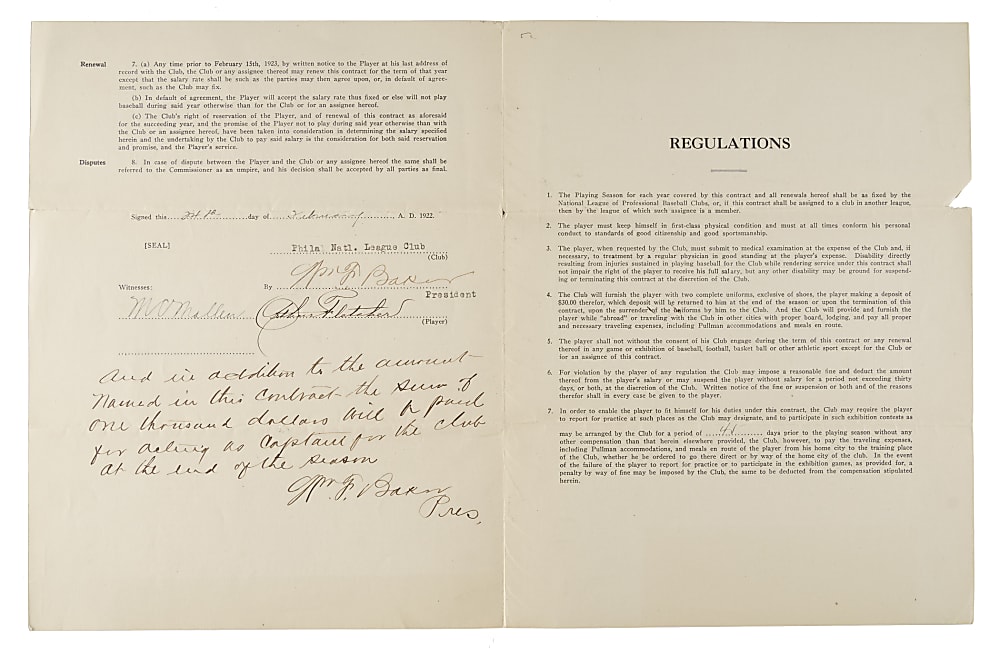 Renewal 7. (a) Any time prior to February 15th, 1923, by written notice to the Player at his last address of
record with the Club, the Club or any assignee thereof may renew this contract for the term of that year
except that the salary rate shall be such as the parties may then agree upon, or, in default of agree-
ment, such as the Club may fix.
(b) In default of agreement, the Player will accept the salary rate thus fixed or else will not play
baseball during said year otherwise than for the Club or for an assignee hereof.
(c) The Club's right of reservation of the Player, and of renewal of this contract as aforesaid
for the succeeding year, and the promise of the Player not to play during said year otherwise than with
the Club or an assignee hereof, have been taken into consideration in determining the salary specified
herein and the undertaking by the Club to pay said salary is the consideration for both said reservation
and promise, and the Player's service.
Disputes 8. In case of dispute between the Player and the Club or any assignee hereof the same shall be
referred to the Commissioner as an umpire, and his decision shall be accepted by all parties as final.
Signed this day of February, A. D. 1922.
[SEAL]
Phila Natl. League Club
(Club)
Witnesses:
By Wm F. Baker
President
Fletcher
(Player)
And in addition to the amount
named in this contract the sum of
one thousand dollars will be paid
for acting as Captain for the club
at the end of the season
Wm F. Baker
Pres.
REGULATIONS
1. The Playing Season for each year covered by this contract and all renewals hereof shall be as fixed by the
National League of Professional Baseball Clubs, or, if this contract shall be assigned to a club in another league,
then by the league of which such assignee is a member.
2. The player must keep himself in first-class physical condition and must at all times conform his personal
conduct to standards of good citizenship and good sportsmanship.
3. The player, when requested by the Club, must submit to medical examination at the expense of the Club and, if
necessary, to treatment by a regular physician in good standing at the player's expense. Disability directly
resulting from injuries sustained in playing baseball for the Club while rendering service under this contract shall
not impair the right of the player to receive his full salary, but any other disability may be ground for suspend-
ing or terminating this contract at the discretion of the Club.
4. The Club will furnish the player with two complete uniforms, exclusive of shoes, the player making a deposit of
$30.00 therefor, which deposit will be returned to him at the end of the season or upon the termination of this
contract, upon the surrender of the uniforms by him to the Club. And the Club will provide and furnish the
player while "abroad" or traveling with the Club in other cities with proper board, lodging, and pay all proper
and necessary traveling expenses, including Pullman accommodations and meals en route.
5. The player shall not without the consent of his Club engage during the term of this contract or any renewal
thereof in any game or exhibition of baseball, football, basket ball or other athletic sport except for the Club or
for an assignee of this contract.
6. For violation by the player of any regulation the Club may impose a reasonable fine and deduct the amount
thereof from the player's salary or may suspend the player without salary for a period not exceeding thirty
days, or both, at the discretion of the Club. Written notice of the fine or suspension or both and of the reasons
therefor shall in every case be given to the player.
7. In order to enable the player to fit himself for his duties under this contract, the Club may require the player
to report for practice at such places as the Club may designate, and to participate in such exhibition contests as
may be arranged by the Club for a period of days prior to the playing season without any
other compensation than that herein elsewhere provided, the Club, however, to pay the traveling expenses,
including Pullman accommodations, and meals en route of the player from his home city to the training place
of the Club, whether he be ordered to go there direct or by way of the home city of the club. In the event
of the failure of the player to report for practice or to participate in the exhibition games, as provided for, a
penalty by way of fine may be imposed by the Club, the same to be deducted from the compensation stipulated
herein.